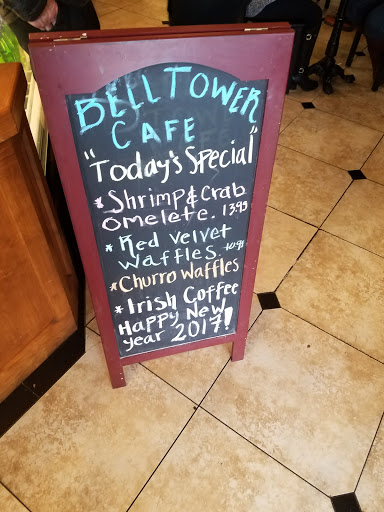 BELL TOWER
CAFE
"Today's Special"
* Shrimp & Crab
Omelete. 13.95
* Red Velvet
Waffles.
* Churro Waffles
* Irish Coffee
Happy New
year 2017!